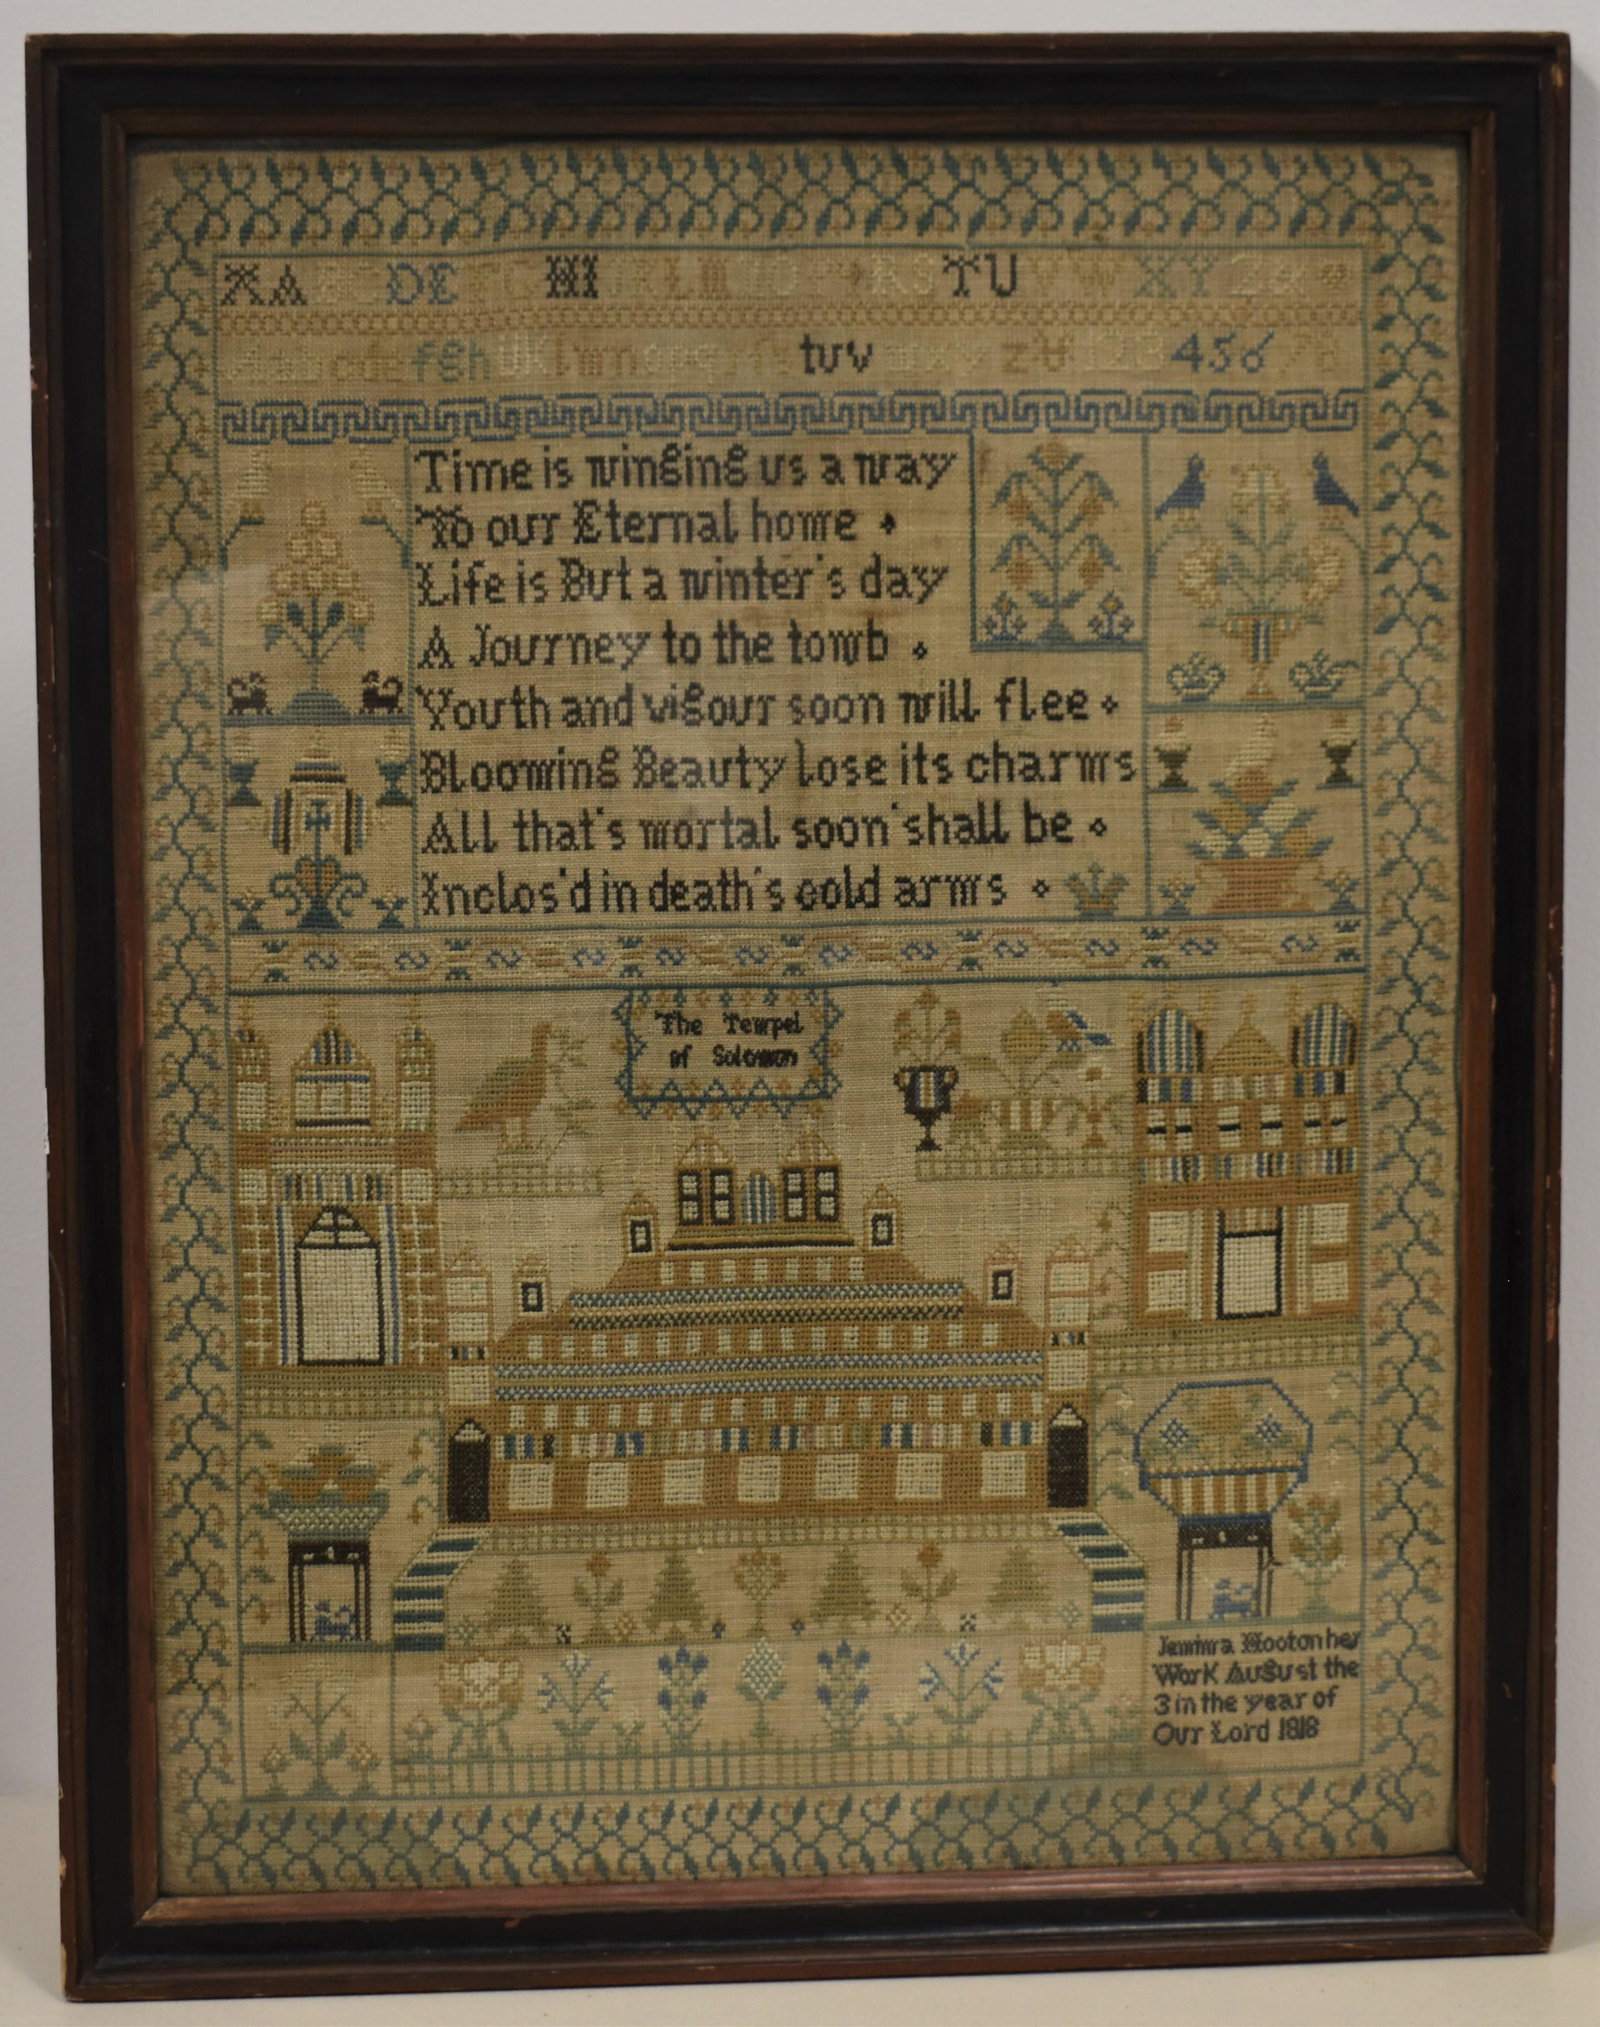 A A B C D E F G H I K L M O R S T U V W X Y Z
a b c d e f g h k l m n o p q s t u v w x y z 1 2 3 4 5 6
Time is winging us a way
To our Eternal home
Life is But a winter's day
A Journey to the tomb
Youth and vigour soon will flee
Blooming Beauty lose its charms
All that's mortal soon shall be
Inclos'd in death's cold arms
The Tempel
of Solomon
Jemima Hooton her
Work August the
3 in the year of
Our Lord 1818